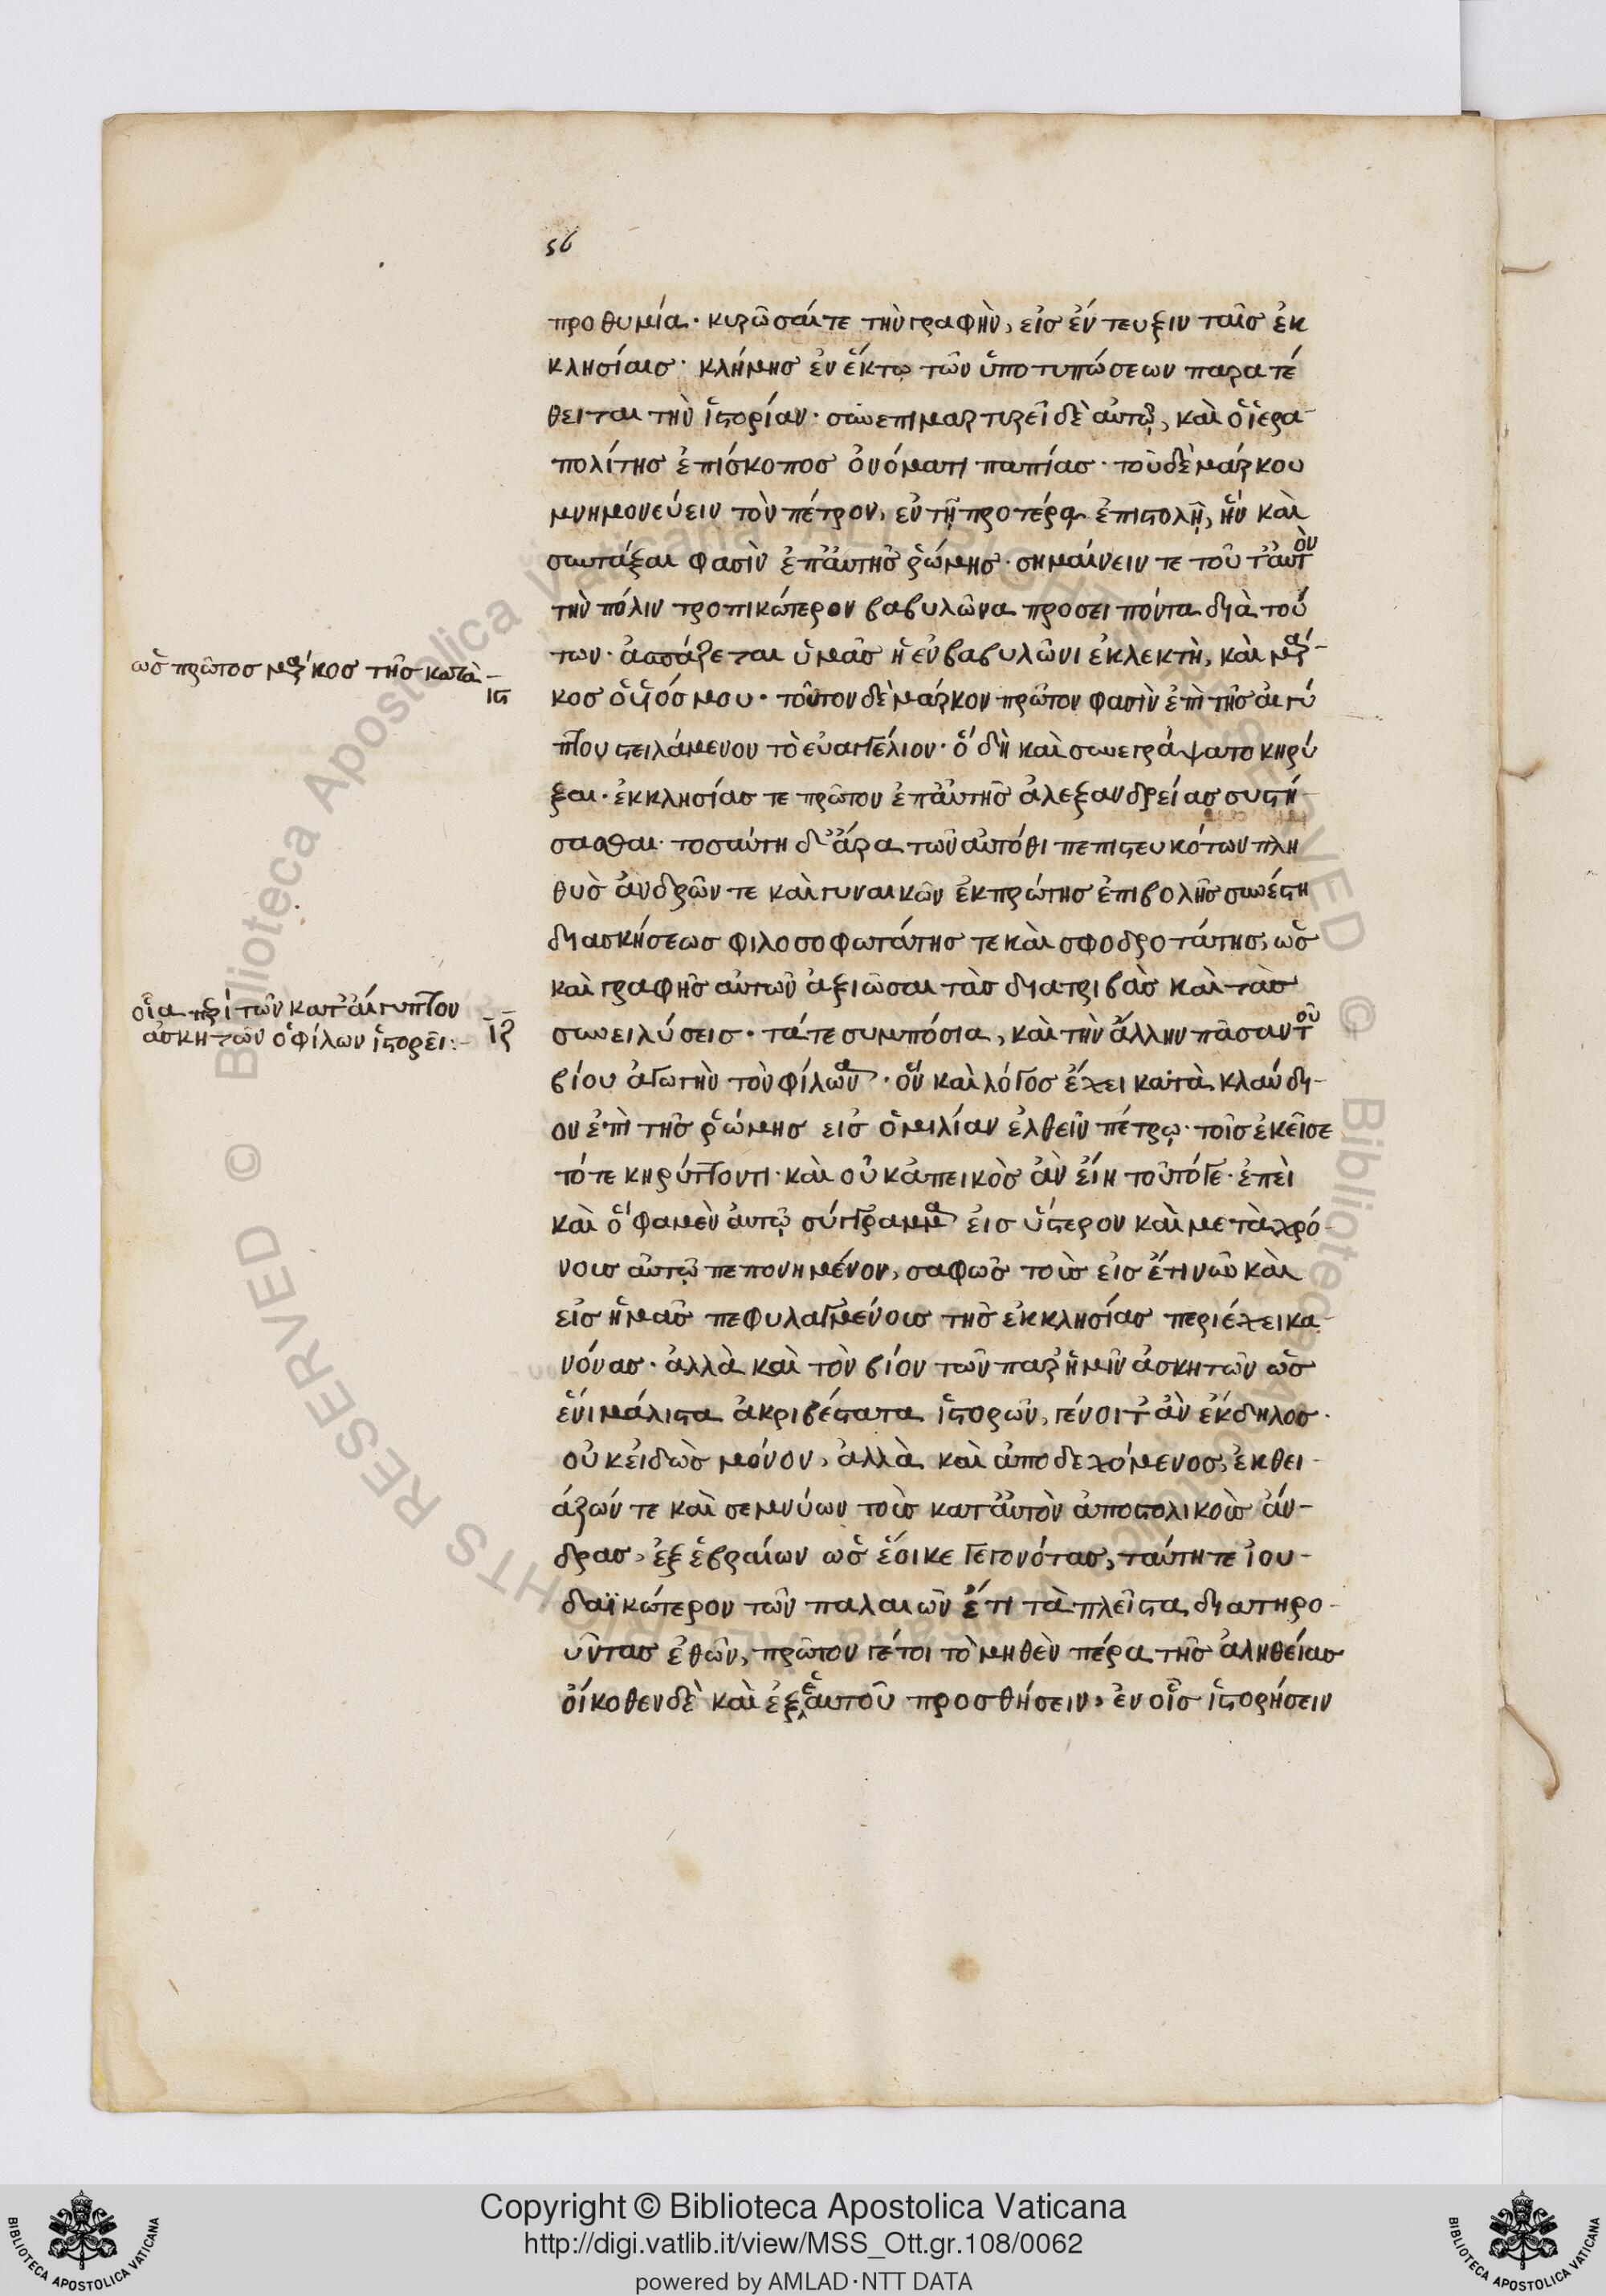 56
προθυμία· κυρῶσαί τε τὴν γραφὴν, εἰσ ἐν τευξιν ταῖσ ἐκ
κλησίαισ· κλήμησ ἐν ἕκτῳ τῶν ὑποτυπώσεων παρατέ
θειται τὴν ἱστορίαν· συνεπιμαρτυρεῖ δὲ αὐτῷ, καὶ ὁ ἱερα-
πολίτησ ἐπίσκοποσ ὀνόματι παπίασ· τοῦ δὲ μάρκου
μνημονεύειν τὸν πέτρον, ἐν τῇ προτέρᾳ ἐπιστολῇ, ἣν καὶ
συντάξαι φασὶν ἐπ' αὐτῆσ ῥώμησ· σημαίνειν τε τοῦτ' αὐτὸν
τὴν πόλιν τροπικώτερον βαβυλῶνα προσειπόντα διὰ τού
των· ἀσπάζεται ὑμᾶσ ἡ ἐν βαβυλῶνι ἐκλεκτὴ, καὶ μάρ-
κοσ ὁ υἱόσ μου· τοῦτον δὲ μάρκον πρῶτον φασὶν ἐπὶ τῆσ αἰγύ
πτου στειλάμενον τὸ εὐαγγέλιον· ὃ δὴ καὶ συνεγράψατο κηρύ
ξαι· ἐκκλησίασ τε πρῶτον ἐπ' αὐτῆσ ἀλεξανδρείασ συστή-
σασθαι· τοσαύτη δ' ἄρα τῶν αὐτόθι πεπιστευκότων πλη
θυσ ἀνδρῶν τε καὶ γυναικῶν ἐκ πρώτησ ἐπιβολῆσ συνέστη
δι ασκήσεωσ φιλοσοφωτάτησ τε καὶ σφοδροτάτησ, ὡσ
καὶ γραφῆσ αὐτῶν ἀξιῶσαι τὰσ διατριβὰσ καὶ τὰσ
συνειλύσεισ· τά τε συμπόσια, καὶ τὴν ἄλλην πᾶσαν τοῦ
βίου ἀγωγὴν τὸν φίλωνα· ὃν καὶ λόγοσ ἔχει κατὰ κλαύδι-
ον ἐπὶ τῆσ ῥώμησ εἰσ ὁμιλίαν ἐλθεῖν πέτρῳ· τοῖσ ἐκεῖσε
τότε κηρύττοντι· καὶ οὐκ ἀπεικὸσ ἂν εἴη τοῦτό γε· ἐπεὶ
καὶ ὅ φαμεν αὐτῷ σύγγραμμα εἰσ ὕστερον καὶ μετὰ χρό-
νοισ αὐτῷ πεπονημένον, σαφῶσ τοὺσ εἰσ ἔτι νῦν καὶ
εἰσ ἡμᾶσ πεφυλαγμένουσ τῆσ ἐκκλησίασ περιέχει κα-
νόνασ· ἀλλὰ καὶ τὸν βίον τῶν παρ' ἡμῖν ἀσκητῶν ὡσ
ἔνι μάλιστα ἀκριβέστατα ἱστορῶν, γένοιτ' ἂν ἔκδηλοσ·
οὐκ εἰδὼσ μόνον, ἀλλὰ καὶ ἀποδεχόμενοσ, ἐκθει-
άζων τε καὶ σεμνύων τοὺσ κατ' αὐτὸν ἀποστολικοὺσ ἄν-
δρασ, ἐξ ἑβραίων ὡσ ἔοικε γεγονότασ, ταύτη τε ἰου-
δαϊκώτερον τῶν παλαιῶν ἔτι τὰ πλεῖστα διατηρο-
ῦντασ ἐθῶν, πρῶτον γέ τοι τὸ μηθὲν πέρα τῆσ ἀληθείασ
οἴκοθεν δὲ καὶ ἐξ ἑαυτοῦ προσθήσειν, ἐν οἷσ ἱστορήσειν
ὡσ πρῶτοσ μάρκοσ τῆσ κατὰ
ιϛ
οἷα περὶ τῶν κατ' αἴγυπτον
ἀσκητῶν ὁ φίλων ἱστορεῖ:-
ιζ
Copyright © Biblioteca Apostolica Vaticana
http://digi.vatlib.it/view/MSS_Ott.gr.108/0062
powered by AMLAD·NTT DATA
BIBLIOTECA APOSTOLICA VATICANA
BIBLIOTECA APOSTOLICA VATICANA